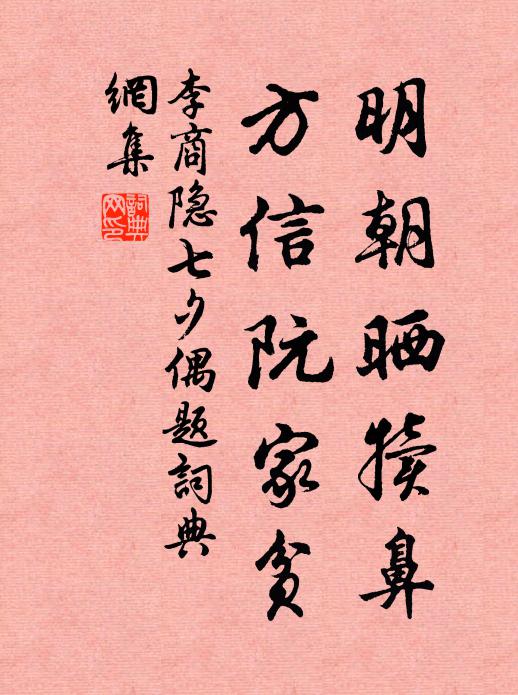 明朝晒犊鼻
方信阮家贫
李商隐七夕偶题詞典
網集
詞典网印